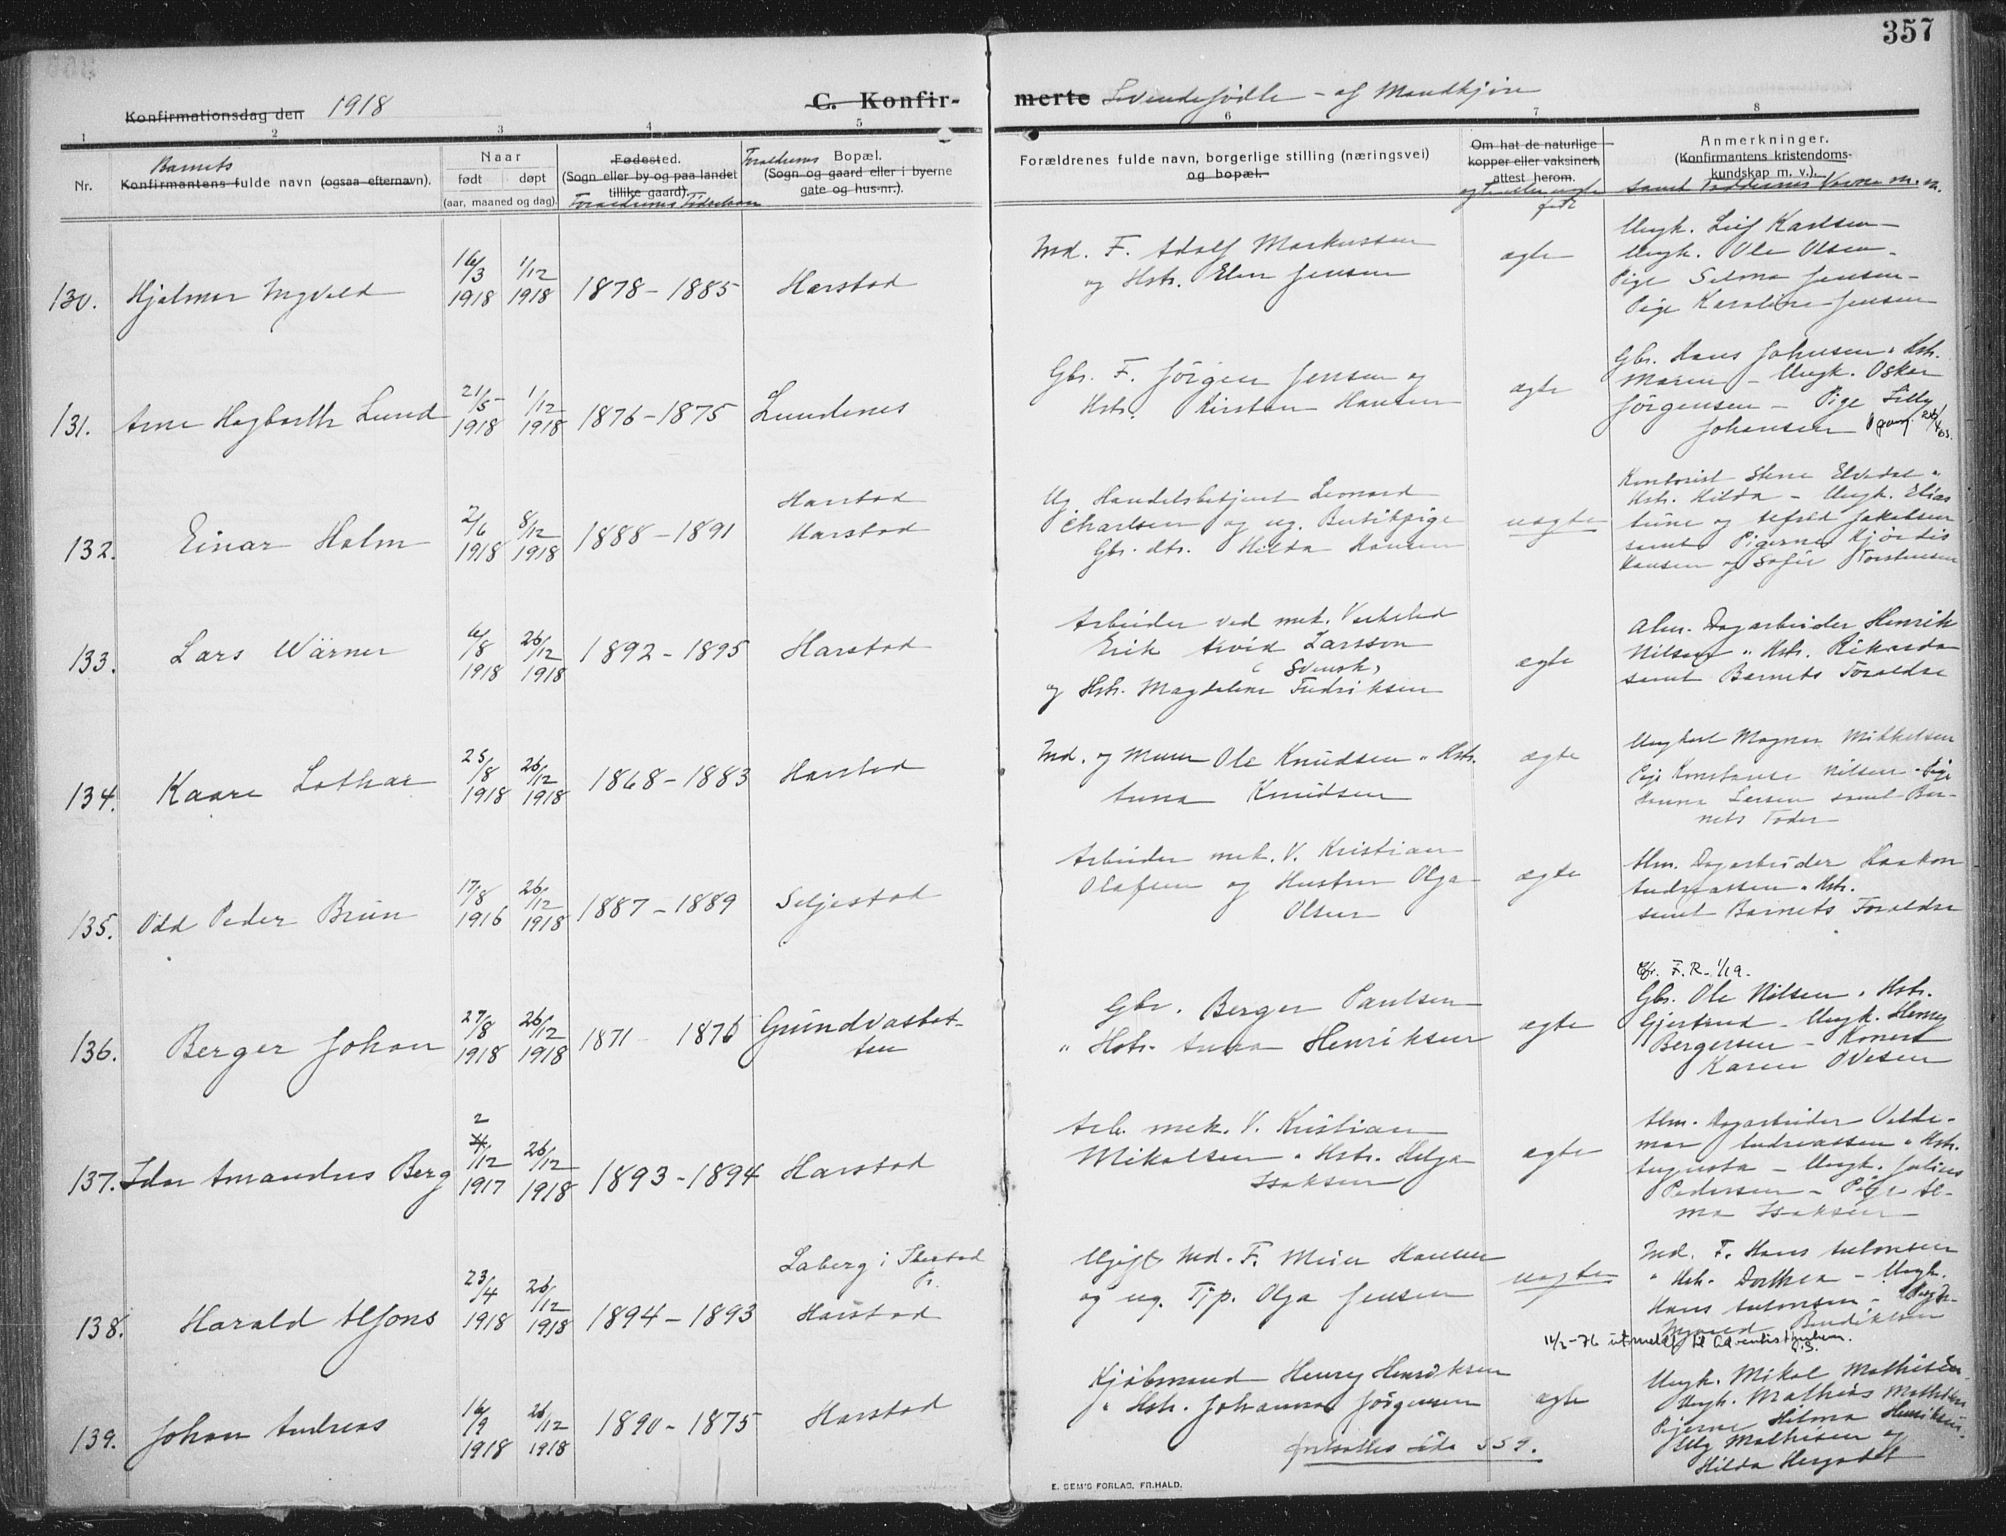 357
Konfirmationsdag den 1918
C. Konfirmerte Levendefødte - af Mandkjøn
1 2 3 4 5 6 7 8
Nr.
Barnets
Konfirmantens fulde navn (ogsaa efternavn).
Naar
født døpt
(aar, maaned og dag).
Fødested.
(Sogn eller by og paa landet
tillike gaard).
Forældrenes Fødselsaar
Forældrenes Bopæl.
(Sogn og gaard eller i byerne
gate og hus-nr.).
Forældrenes fulde navn, borgerlige stilling (næringsvei)
og bopæl.
Om hat de naturlige
kopper eller vaksinert,
attest herom.
Anmerkninger.
(Konfirmantens kristendoms-
kundskap m. v.).
samt Faddernes Navne m. m.
130. Hjalmar Ingvald
16/3 1918
1/12 1918
1878 - 1885
Harstad
Ind. F. Adolf Markussen
og Hstr. Elen Jensen
ægte
Ungk. Leif Karlsen -
Ungk. Ole Olsen -
Pige Selma Jensen -
Pige Karoline Jensen
131. Arne Hagbarth Lund
21/5 1918
1/12 1918
1876 - 1875
Lundenes
Gbr. F. Jörgen Jensen og
Hstr. Kirsten Hansen
ægte
Gbr. Hans Johnsen " Hstr.
Maren - Ungk. Oskar
Jörgensen - Pige Lilly
Johansen
132. Einar Holm
2/6 1918
8/12 1918
1888 - 1891
Harstad
Harstad
Ug. Handelsbetjent Leonard
Charlsen og ug. Butikpige
Gbr. dtr. Hilda Hansen
uægte
Kontorist Elvedal "
Hstr. Hilda - Ungk. Elias
og Jakobsen
samt Pigerne Hjördis
Hansen og Sofie Torstensen
133. Lars Wärner
6/8 1918
26/12 1918
1892 - 1895
Harstad
Arbeider ved mek. Verksted
Erik Arvid Larsson
(Svensk)
og Hstr. Magdeline Fredriksen
ægte
Alm. Dagarbeider Henrik
Nilsen " Hstr. Rikarda
samt Barnets Forældre
134. Kaare Lothar
25/8 1918
26/12 1918
1868 - 1883
Harstad
Ind. og Murer Ole Knudsen " Hstr.
Anna Knudsen
ægte
Ungkarl Magnus Mikkelsen
Pige Konstanse Nilsen - Pige
Hanna Larsen samt Bar-
nets Fader
135. Odd Peder Brun
17/8 1916
26/12 1918
1887 - 1889
Seljestad
Arbeider mek. V. Kristian
Olafsen og Hustru Olga
Olsen
ægte
Alm. Dagarbeider Haakon
Andreassen " Hstr.
samt Barnets Forældre
136. Berger Johan
27/8 1918
26/12 1918
1871 - 1876
Grundvasbot-
ten
Gbr. Berger Paulsen
" Hstr. Anna Henriksen
ægte
Cfr. F. R. 1/19.
Gbr. Ole Nilsen " Hstr.
Gjertrud - Ungk. Henry
Bergersen - Konest
Karen Ovesen
137. Idar Amandus Berg
2/12 1917
26/12 1918
1893 - 1894
Harstad
Arb. mek. V. Kristian
Mikalsen " Hstr. Helga
Isaksen
ægte
Alm. Dagarbeider Valde-
mar Andreassen " Hstr.
Augusta - Ungk. Julius
Pedersen - Pige Al-
ma Isaksen
138. Harald Alfons
23/4 1918
26/12 1918
1894 - 1893
Laberg i Ibestad
Pr.
Harstad
Ugift Ind. F. Meier Hansen
og ug. Tjp. Olga Jensen
uægte
Ind. F. Hans Antonsen
" Hstr. Dorthea - Ungk.
Hans Antonsen - Pige
Bendiksen
utmeldt til Adventistkirken.
139. Johan Andreas
16/9 1918
26/12 1918
1890 - 1875
Harstad
Kjöbmand Henry Henriksen
" Hstr. Johanna Jörgensen
ægte
Ungk. Mikal Mathisen
Ungk. Mathias Mathisen
Pigerne Hilma Henriksen,
Elly Mathisen og
Hilda
fortsættes Side 359.
E. SEM'S FORLAG, FR.HALD.